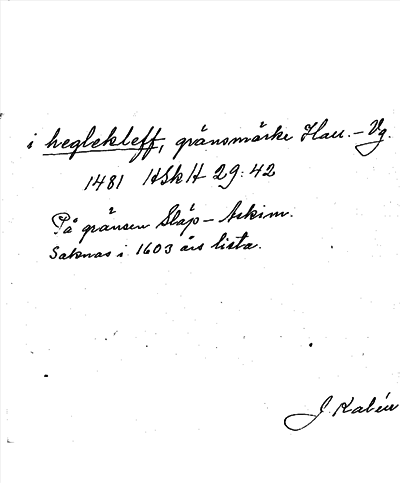 i heglekleff, gränsmärke Hall.-Vg.
1481 HSkH 29:42
På gränsen Släp - Askim.
Saknas i 1603 års lista.
J. Kalén